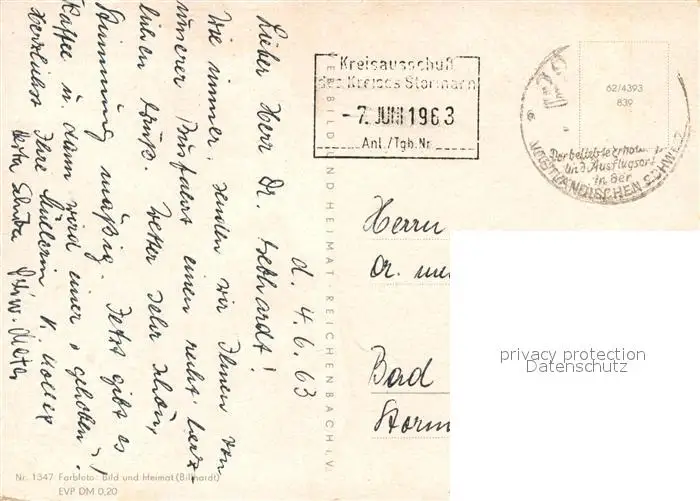 d. 4.6.63
Lieber Herr Dr. Gebhardt!
Wie immer, senden wir Ihnen von
unserer Busfahrt einen recht herz-
lichen Gruß. Wetter sehr schön,
Stimmung mäßig. Jetzt gibt es
Kaffee u. dann wird einer "gehoben"!
Herzlichst Ihre
Kreisausschuß
des Kreises Stormarn
- 7. JUNI 1963
Anl./Tgb.Nr.
62/4393
839
Der beliebte Erho
und Ausflugsort
in der
VOGTLÄNDISCHEN SCHWEIZ
Herrn
Dr. me
Bad
Storm
VERLAG BILD UND HEIMAT · REICHENBACH i. V.
Nr. 1347 Farbfoto: Bild und Heimat (Billhardt)
EVP DM 0,20
privacy protection
Datenschutz